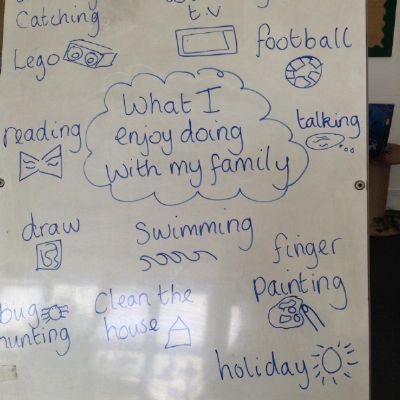 Catching
t.v
football
Lego
What I
enjoy doing
with my family
reading
talking
draw
Swimming
finger
Painting
bug
hunting
Clean the
house
holiday